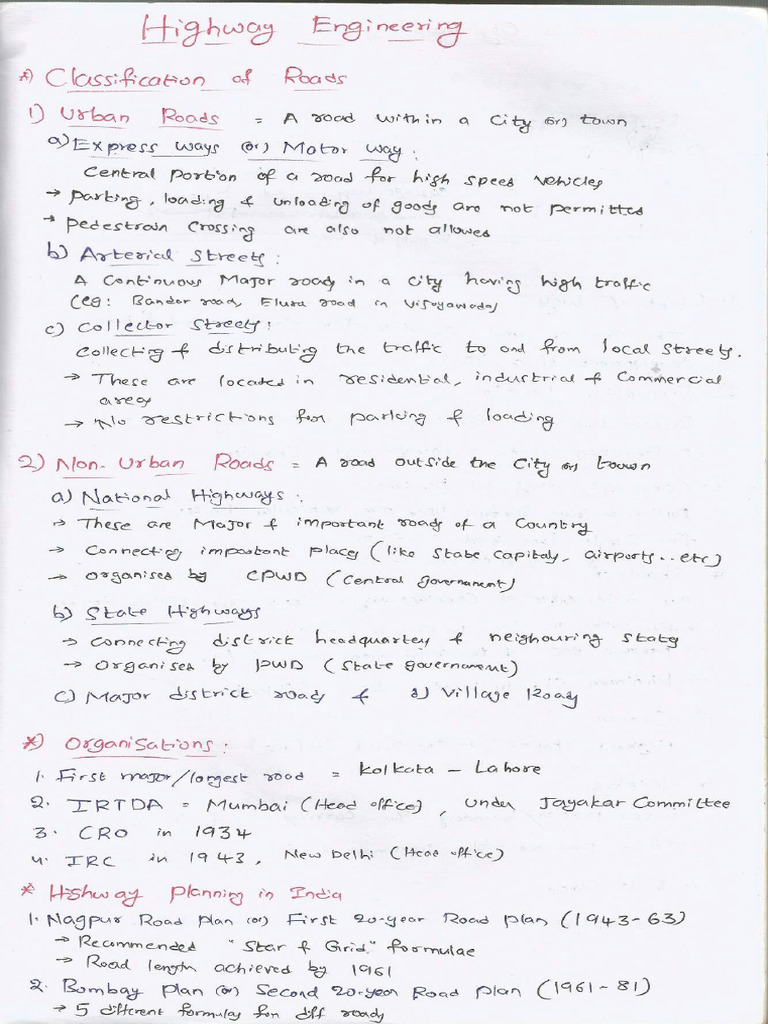 Highway Engineering
*) Classification of Roads
1) Urban Roads = A road within a City (or) town
a) Express ways (or) Motor way :
Central portion of a road for high speed vehicles
→ Parking, loading & unloading of goods are not permitted
→ Pedestrain Crossing are also not allowed
b) Arterial Streets :
A Continuous Major road in a city having high traffic
(eg: Bandar road, Eluru road in Vijayawada)
c) Collector Streets :
Collecting & distributing the traffic to and from local streets.
→ These are located in residential, industrial & Commercial
areas
→ No restrictions for parking & loading
2) Non-Urban Roads = A road outside the City (or) town
a) National Highways :
→ These are Major & important roads of a Country
→ Connecting important places (like State Capitals, airports.. etc)
→ Organised by CPWD (Central governament)
b) State Highways
→ Connecting district headquarters & neighouring states
→ Organised by PWD (State governament)
c) Major district roads & d) Village Roads
*) Organisations :
1. First major/longest road = Kolkata - Lahore
2. IRTDA = Mumbai (Head office), under Jayakar Committee
3. CRO in 1934
4. IRC in 1943, New Delhi (Head office)
* Highway Planning in India
1. Nagpur Road Plan (or) First 20-year Road plan (1943-63)
→ Recommended "Star & Grid" formulae
→ Road length achieved by 1961
2. Bombay Plan (or) Second 20-year Road Plan (1961-81)
→ 5 different formulas for diff roads